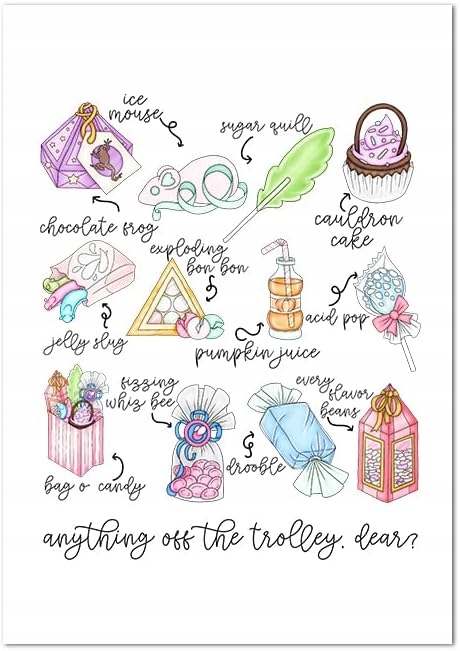 ice
mouse
sugar quill
chocolate frog
cauldron
cake
exploding
bon bon
jelly slug
pumpkin juice
acid pop
fizzing
whiz bee
every flavor
beans
bag o' candy
drooble
anything off the trolley, dear?